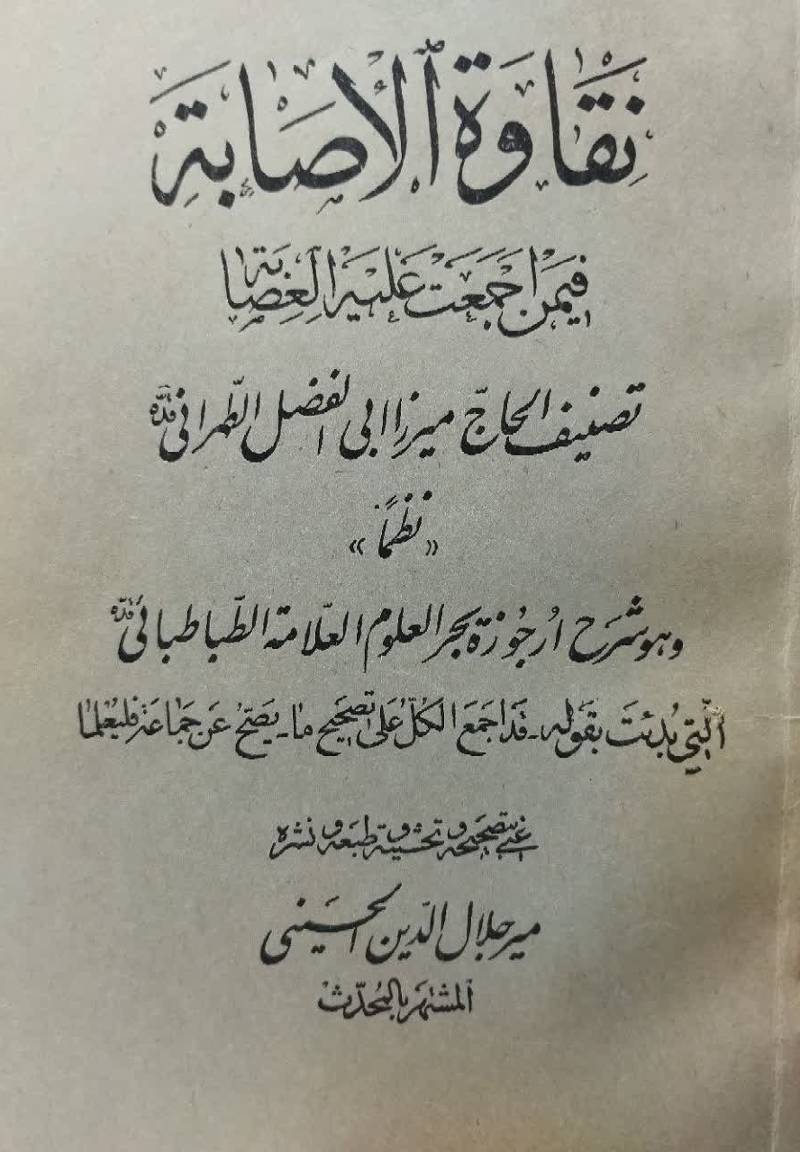 نقاوة الإصابة
فيمن اجمعت عليه العصابة
تصنيف الحاجّ ميرزا ابى الفضل الطّهرانى قدّه
«نظمًا»
وهو شرح ارجوزة بحر العلوم العلّامة الطّباطبائى قدّه
الّتي بدئت بقوله - قد اجمع الكلّ على تصحيح ما - يصحّ عن جماعة فليعلما
عني بتصحيحه و تحشيته و طبعه و نشره
مير جلال الدّين الحسينى
المشتهر بالمحدّث